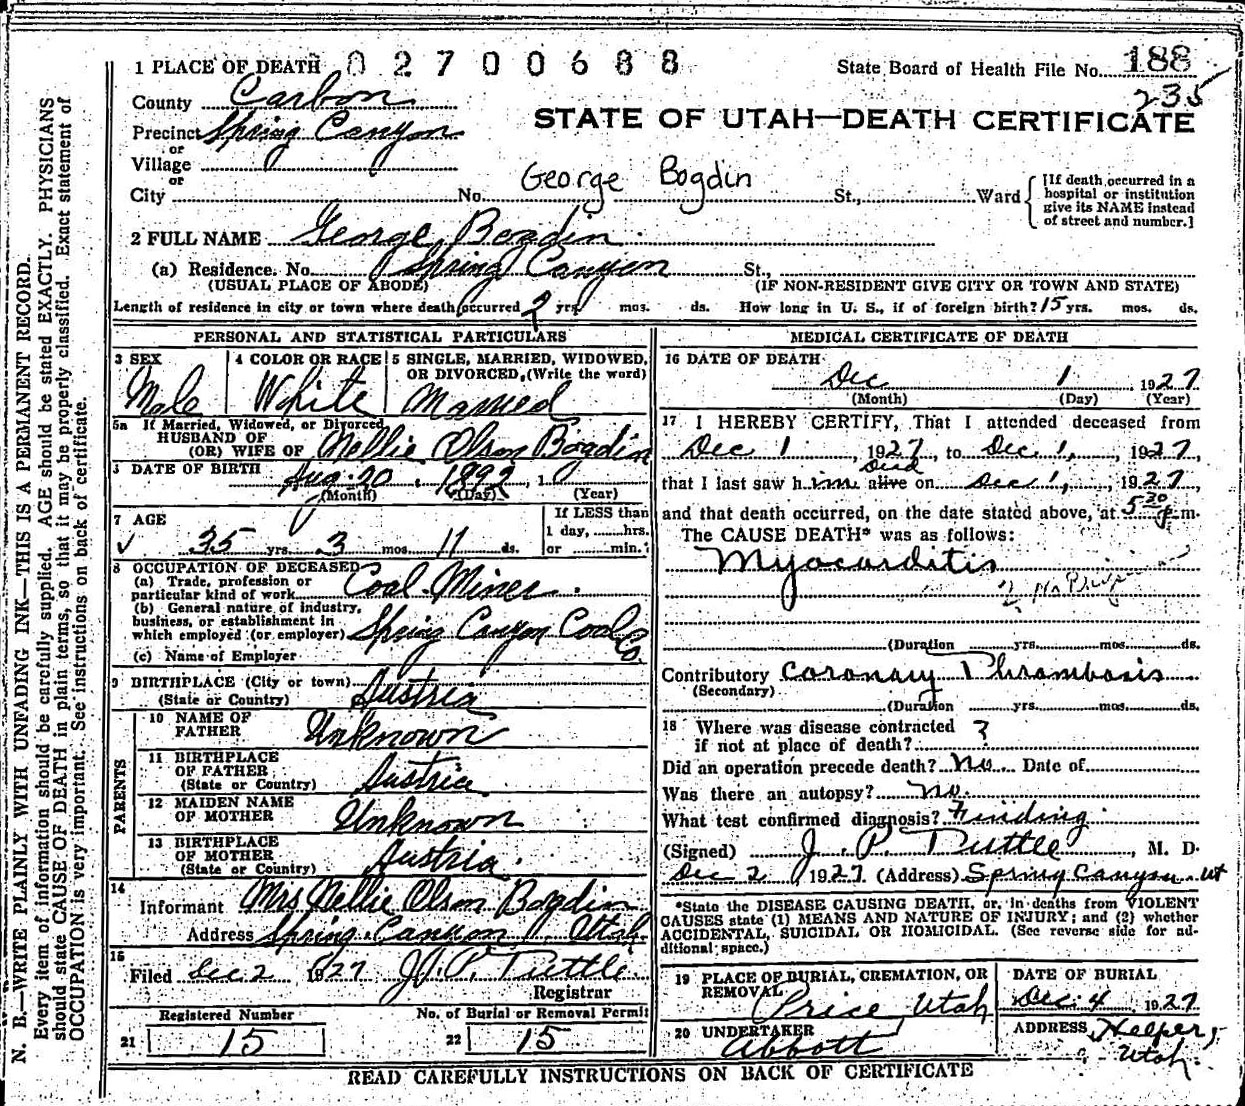 1 PLACE OF DEATH 02700688
State Board of Health File No. 188
235
County Carbon
STATE OF UTAH—DEATH CERTIFICATE
Precinct Spring Canyon
or
Village
or
City No. St., Ward
George Bogdin
[If death occurred in a
hospital or institution
give its NAME instead
of street and number.]
2 FULL NAME George Bogdin
(a) Residence. No. Spring Canyon St.,
(USUAL PLACE OF ABODE) (IF NON-RESIDENT GIVE CITY OR TOWN AND STATE)
Length of residence in city or town where death occurred 2 yrs. mos. ds. How long in U. S., if of foreign birth? 15 yrs. mos. ds.
PERSONAL AND STATISTICAL PARTICULARS
3 SEX
Male
4 COLOR OR RACE
White
5 SINGLE, MARRIED, WIDOWED,
OR DIVORCED, (Write the word)
Married
5a If Married, Widowed, or Divorced
HUSBAND OF
(OR) WIFE OF Nellie Olson Bogdin
6 DATE OF BIRTH
Aug. 20, 1892, 1
(Month) (Day) (Year)
7 AGE
35 yrs. 3 mos. 11 ds.
If LESS than
1 day, hrs.
or min.
8 OCCUPATION OF DECEASED
(a) Trade, profession or
particular kind of work Coal Miner
(b) General nature of industry,
business, or establishment in
which employed (or employer) Spring Canyon Coal Co.
(c) Name of Employer
9 BIRTHPLACE (City or town)
(State or Country) Austria
PARENTS
10 NAME OF
FATHER Unknown
11 BIRTHPLACE
OF FATHER
(State or Country) Austria
12 MAIDEN NAME
OF MOTHER Unknown
13 BIRTHPLACE
OF MOTHER
(State or Country) Austria
14
Informant Mrs Nellie Olson Bogdin
Address Spring Canyon Utah
15
Filed Dec 2 1927 J. P. Tuttle
Registrar
Registered Number
21 15
No. of Burial or Removal Permit
22 15
MEDICAL CERTIFICATE OF DEATH
16 DATE OF DEATH
Dec 1, 1927
(Month) (Day) (Year)
17 I HEREBY CERTIFY, That I attended deceased from
Dec 1, 1927, to Dec 1, 1927,
Dead
that I last saw him alive on Dec 1, 1927,
and that death occurred, on the date stated above, at 5 30 p. m.
The CAUSE DEATH* was as follows:
Myocarditis
(Duration yrs. mos. ds.
Contributory Coronary Thrombosis
(Secondary)
(Duration yrs. mos. ds.
18 Where was disease contracted
if not at place of death? ?
Did an operation precede death? No Date of
Was there an autopsy? no.
What test confirmed diagnosis? Finding
(Signed) J. P. Tuttle, M. D.
Dec 2, 1927 (Address) Spring Canyon Ut
*State the DISEASE CAUSING DEATH, or, in deaths from VIOLENT
CAUSES state (1) MEANS AND NATURE OF INJURY; and (2) whether
ACCIDENTAL, SUICIDAL OR HOMICIDAL. (See reverse side for ad-
ditional space.)
19 PLACE OF BURIAL, CREMATION, OR
REMOVAL
Price Utah
DATE OF BURIAL
Dec. 4 1927
20 UNDERTAKER
Abbott
ADDRESS Helper,
Utah.
READ CAREFULLY INSTRUCTIONS ON BACK OF CERTIFICATE
N. B.—WRITE PLAINLY WITH UNFADING INK—THIS IS A PERMANENT RECORD.
Every item of information should be carefully supplied. AGE should be stated EXACTLY. PHYSICIANS
should state CAUSE OF DEATH in plain terms, so that it may be properly classified. Exact statement of
OCCUPATION is very important. See instructions on back of certificate.